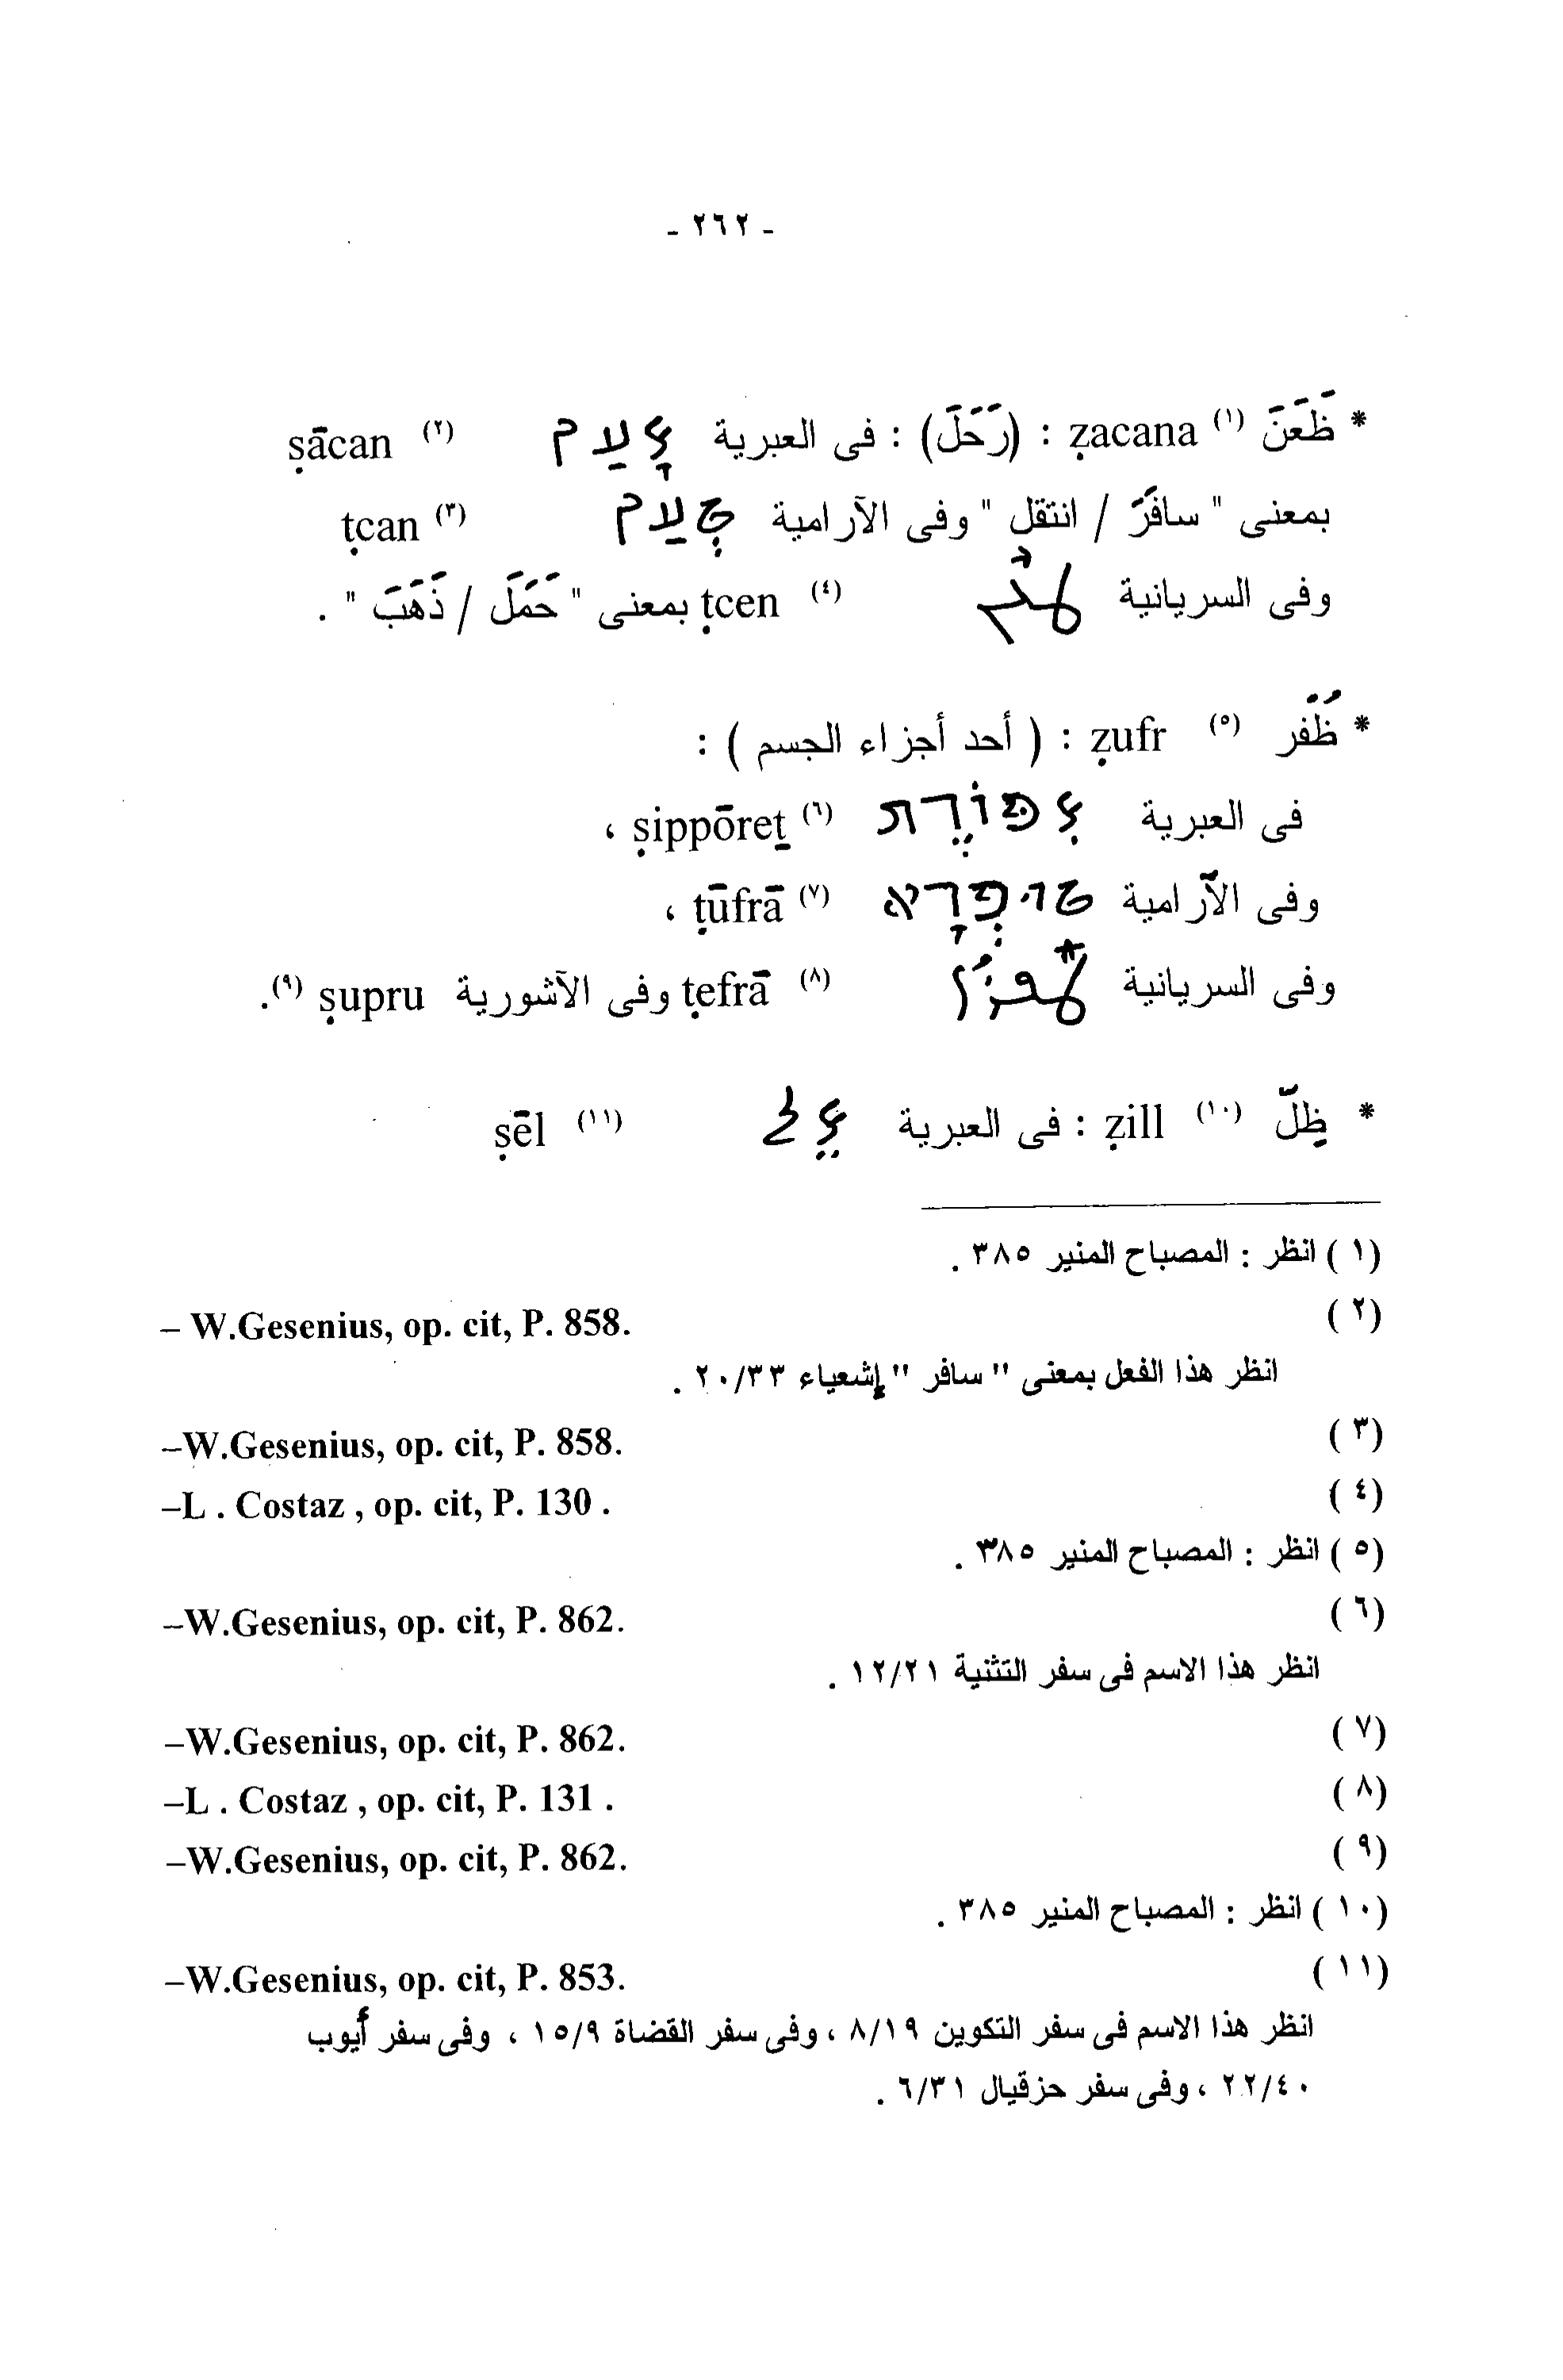 - ٢٦٢ -
* ظَعَنَ (١) ẓacana : (رَحَلَ) : فى العبرية צָעַן (٢) ṣācan
بمعنى " سافَرَ / انتقل " وفى الآرامية טְעַן (٣) ṭcan
وفى السريانية ܛܥܢ (٤) ṭcen بمعنى " حَمَلَ / ذَهَبَ " .
* ظُفْر (٥) ẓufr : ( أحد أجزاء الجسم ) :
فى العبرية צִפֹּורֶת (٦) ṣippōreṯ ،
وفى الآرامية טוּפְרָא (٧) ṭūfrā ،
وفى السريانية ܛܦܪܐ (٨) ṭefrā وفى الآشورية ṣupru (٩).
* ظِلّ (١٠) ẓill : فى العبرية צֵל (١١) ṣēl
(١) انظر : المصباح المنير ٣٨٥ .
(٢) – W.Gesenius, op. cit, P. 858.
انظر هذا الفعل بمعنى " سافر " إشعياء ٢٠/٣٣ .
(٣) –W.Gesenius, op. cit, P. 858.
(٤) –L . Costaz , op. cit, P. 130 .
(٥) انظر : المصباح المنير ٣٨٥ .
(٦) –W.Gesenius, op. cit, P. 862.
انظر هذا الاسم فى سفر التثنية ١٢/٢١ .
(٧) –W.Gesenius, op. cit, P. 862.
(٨) –L . Costaz , op. cit, P. 131 .
(٩) –W.Gesenius, op. cit, P. 862.
(١٠) انظر : المصباح المنير ٣٨٥ .
(١١) –W.Gesenius, op. cit, P. 853.
انظر هذا الاسم فى سفر التكوين ٨/١٩ ، وفى سفر القضاة ١٥/٩ ، وفى سفر أيوب
٢٢/٤٠ ، وفى سفر حزقيال ٦/٣١ .